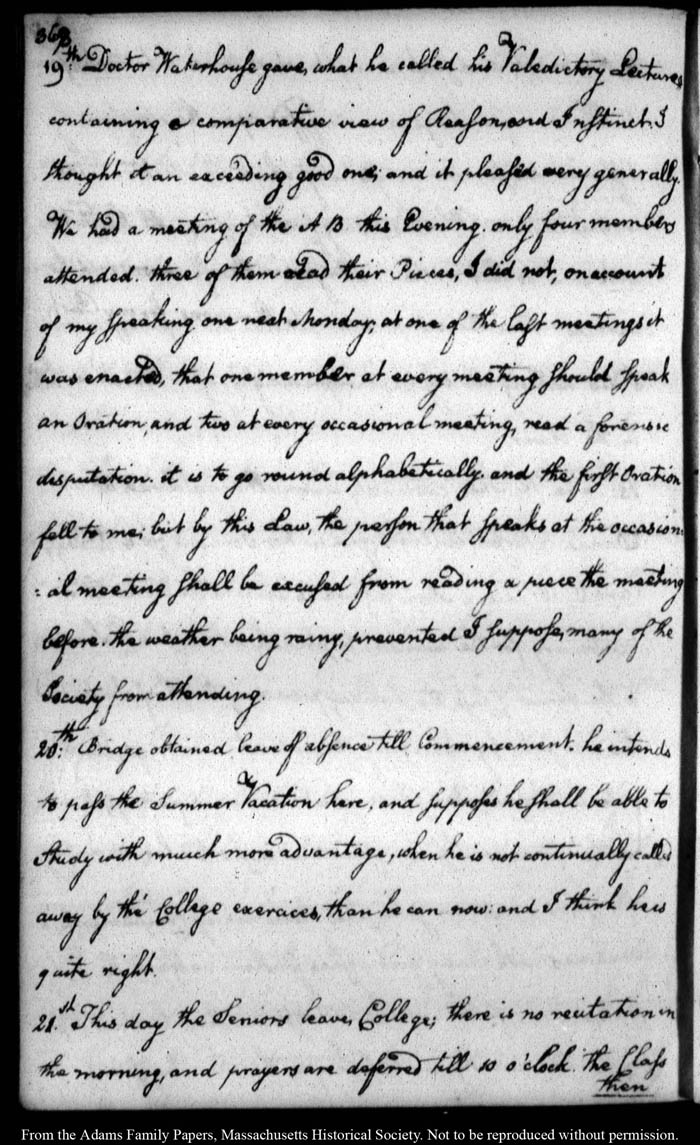 368
19.th Doctor Waterhouse gave, what he called his Valedictory Lecture,
containing a comparative view of Reason, and Instinct. I
thought it an exceeding good one; and it pleased very generally.
We had a meeting of the A B this Evening. only four members
attended. three of them read their Pieces, I did not, on account
of my speaking one next Monday; at one of the last meetings it
was enacted, that one member at every meeting should speak
an Oration, and two at every occasional meeting, read a forensic
disputation. it is to go round alphabetically. and the first Oration
fell to me; but by this Law, the person that speaks at the occasion=
=al meeting shall be excused from reading a piece the meeting
before. the weather being rainy, prevented I suppose, many of the
Society from attending.
20.th Bridge obtained leave of absence till Commencement. he intends
to pass the Summer Vacation here, and supposes he shall be able to
study with much more advantage, when he is not continually called
away by the College exercices, than he can now: and I think he is
quite right.
21.st This day the Seniors leave, College; there is no recitation in
the morning, and prayers are deferred till 10 o'clock. The Class
then
From the Adams Family Papers, Massachusetts Historical Society. Not to be reproduced without permission.